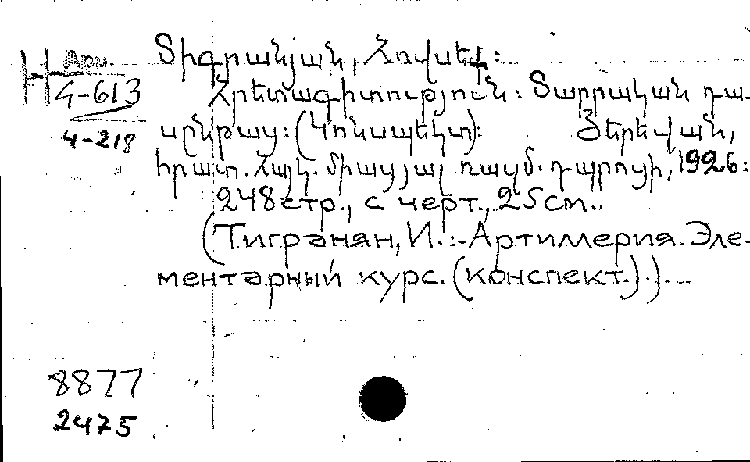 Տիգրանյան, Հովսեփ:
H Арм.
4-613
4-218
Հրետագիտություն: Տարրական դա-
սընթաց: (Կոնսպեկտ): Յերեվան,
հրատ. Հայկ. միացյալ ռազմ. դպրոցի, 1926:
248 стр., с черт., 25 см..
(Тигранян, И.:- Артиллерия. Эле-
ментарный курс. (конспект.).).
8877
2475